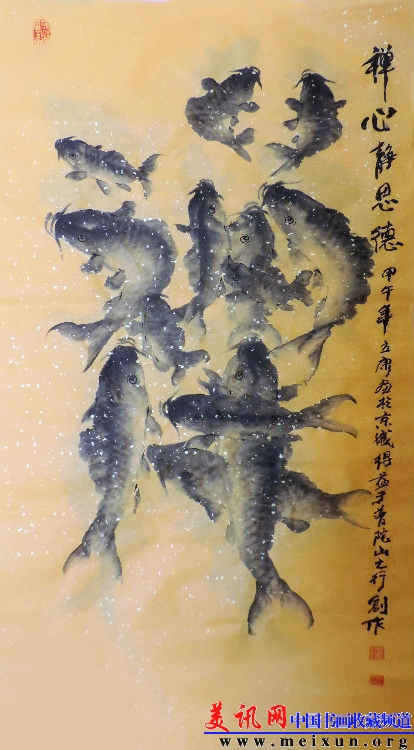 禅心静思德
甲午年立康画於京城得益于普陀山之行创作
美讯网 中国书画收藏频道
www.meixun.org